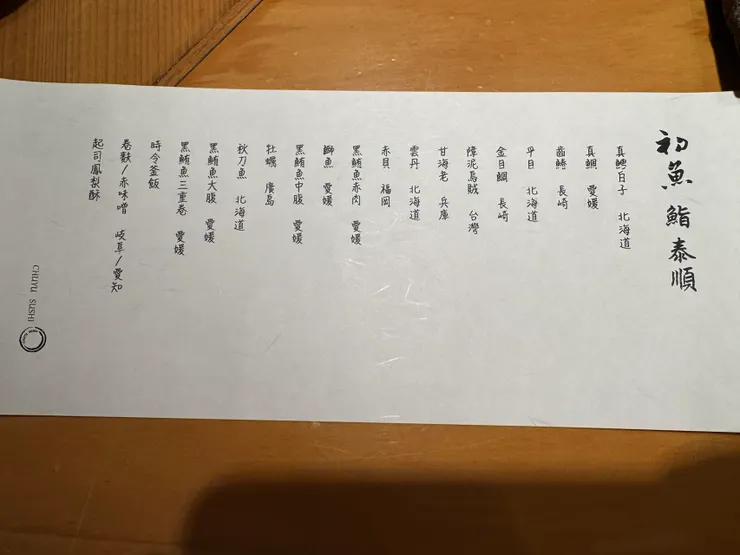 初魚 鮨 泰順
真鱈白子 北海道
真鯛 愛媛
齒鰆 長崎
平目 北海道
金目鯛 長崎
障泥烏賊 台灣
甘海老 兵庫
雲丹 北海道
赤貝 福岡
黑鮪魚赤肉 愛媛
鰤魚 愛媛
黑鮪魚中腹 愛媛
牡蠣 廣島
秋刀魚 北海道
黑鮪魚大腹 愛媛
黑鮪魚三重卷 愛媛
時令釜飯
卷麩/赤味噌 岐阜/愛知
起司鳳梨酥
CHUYU SUSHI